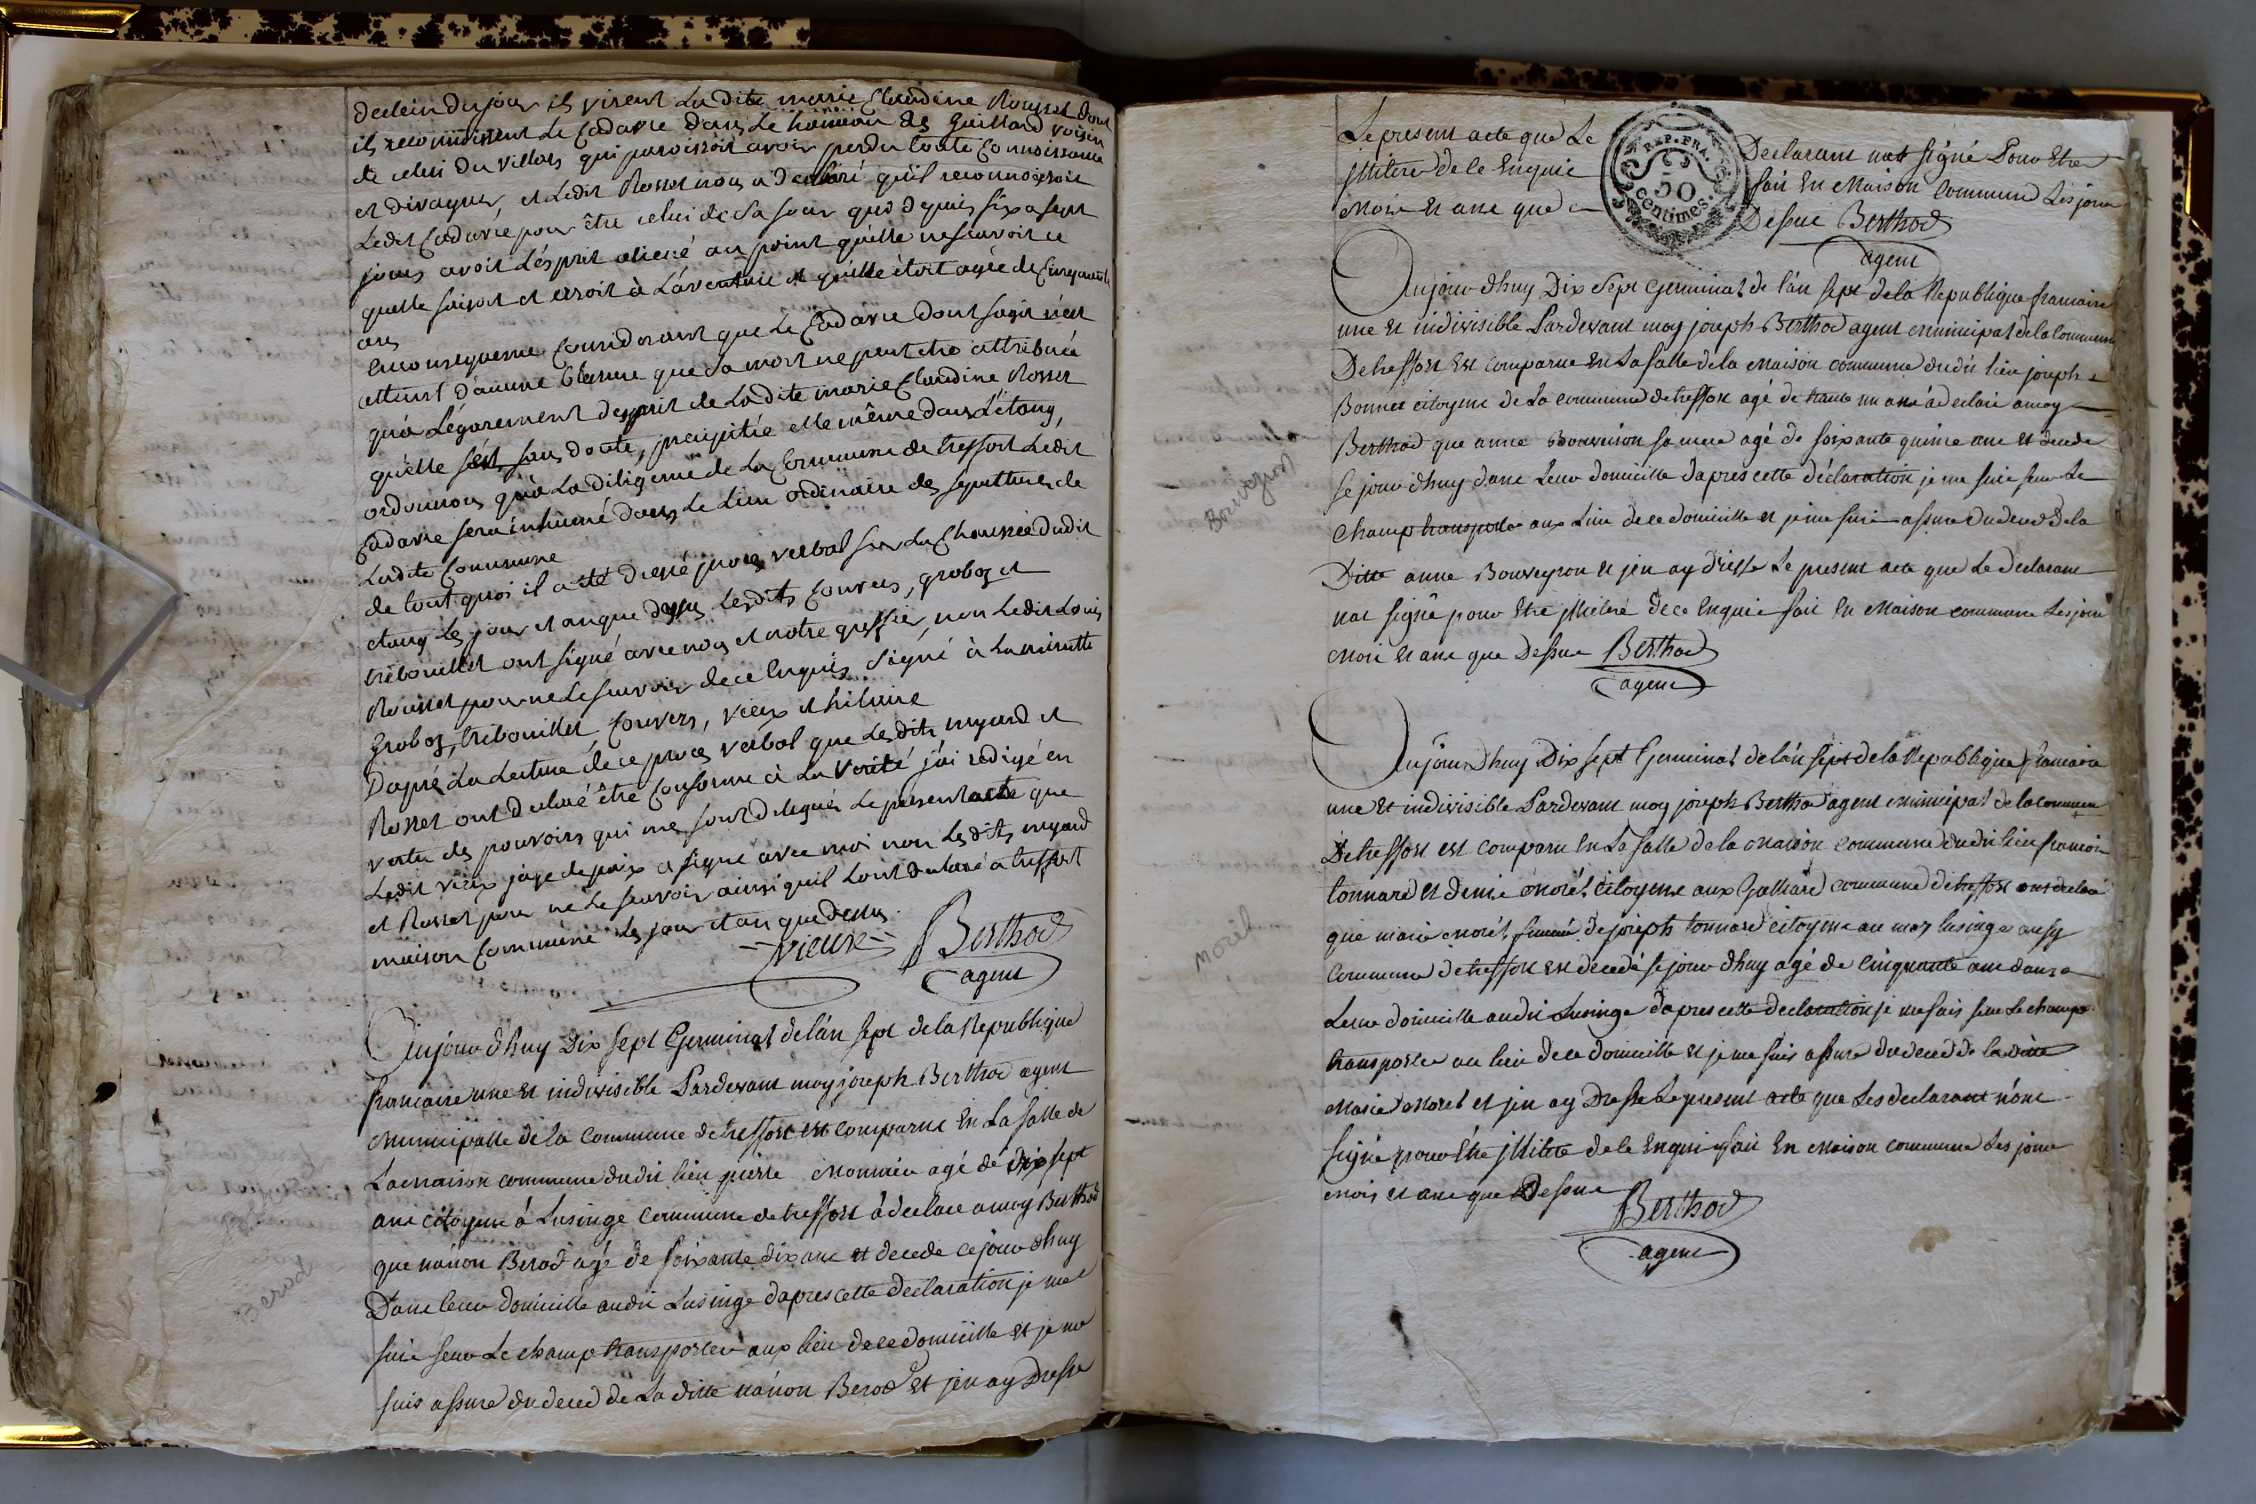 declein du jour ils virent La dite marie Claudine Rousset dont
ils reconnoissent Le Cadavre dans Le hameau des Guillard voisin
de celui du villars qui paroissoit avoir perdu toute Connoissance
et divaguer, et Ledit Rosset nous a déclaré qu'il reconnoissoit
Ledit Cadavre pour être celui de Sa sœur qui depuis six a sept
jours avoit L'ésprit aliené au point quélle ne scavoit ce
quelle faisoit et erroit à L'áventure et quélle étoit agée de Cinquante
ans
En consequence Considerant que Le Cadavre dont sagit n'est
atteint d'aucune blessure que Sa mort ne peut etre attribuée
qu'a L'égarement desprit de La dite marie Claudine Rosset
qu'elle s'est sans doute, precipitée elle même dans L'étang,
ordonnons qu'a La diligence de La Commune de treffort Ledit
Cadavre sera inhumé dans Le Lieu ordinaire des sepultures de
Ladite Commune
de tout quoi il a été dressé procés verbal sur La Chaussée dudit
étang Les jour et an que dessus Lesdits Convers, groboz et
trébouillet ont signé avec nous et notre greffier, non Ledit Louis
Rousset pour ne Le scavoir de ce Enquis Signé à La minutte
groboz, trébouillet, Convers, vieux et hilaire
D'après La Lecture de ce procés verbal que Lesdits myard et
Rosset ont declaré être Conforme à La Verité j'ai redigé en
vertu des pouvoirs qui me sont delegués Le présent acte que
Ledit vieux juge de paix a signé avec moi non Lesdits myard
et Rosset pour ne Le scavoir ainsi quil Lont declaré a treffort
maison Commune Les jour et an que dessus.
Vieux Berthod
agent
Aujourdhuy Dix sept Germinal de lán sept de la Republique
francaise une et indivisible Pardevant moy joseph Berthod agent
municipalle de la commune de treffort est comparue En La salle de
La maison commune dudit lieu pierre Monnier agé de dix sept
ans citoyens á Lusinge commune de treffort à declare a moy Berthod
que nánon Berod agé de soixante dix ans et decede ce jourdhuy
Dans leur domicille audit Lusinge dapres cette declaration je me
suis seur Le champ transporter aux lieu de ce domicille et je me
suis assure du deced de La ditte nánon Berod et jen ay Dresse
Berod
Le present acte que Le
jllitere de le Enquie
mois et ans que
REP. FRA.
50
centimes.
Declarant nat signé Pour Etre
fait En Maison Commune Les jour
Dessue Berthod
agent
Aujourdhuy Dix Sept Germinal de lán sept de la Republique francaise
une et indivisible Pardevant moy joseph Berthod agent municipal de la commune
De treffort Est comparue En La salle de la Maison commune dudit lieu joseph
Bonnet citoyens de La commune de treffort agé de trante un ans á declare a moy
Berthod que anne Bouveiron sa mere agé de soixante quinse ans et decede
se jourdhuy dans Leur domicille dapres cette déclaration je me suis seur Le
champ transporter aux Lieu de ce domicille et je me suis assure du deced de la
Ditte anne Bouveyron et jen ay dresse Le present acte que Le declarant
nat signé pour Etre jllitere de ce Enquie fait En Maison commune Les jour
Mois et ans que Dessue Berthod
agent
Bouveyron
Aujourdhuy Dix Sept Germinal de lán sept de la Republique francaise
une et indivisible Pardevant moy joseph Berthod agent municipal de la commune
De treffort est comparu En La salle de la Maison commune dudit lieu francois
tonnard et denis morél citoyens aux Galliard commune de treffort ont declaré
que marie morél femme de joseph tonnard citoyens au may lusinge ausy
commune de treffort est decedé se jourdhuy agé de Cinquante ans dans
Leur domicille audit Lusinge dapres cette declaration je me suis seur Le champ
transporter au lieu de ce domicille et je me suis assure du deced de la ditte
Marie Morel et jen ay Dresse Le present acte que Les declarant n'ont
signé pour être jllitere de le Enqui fait En Maison commune Les jour
mois et ans que Dessue
Berthod
agent
Morél